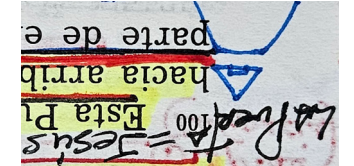 La Puerta = Jesús
100 Esta Pu
hacia arrib
parte de e